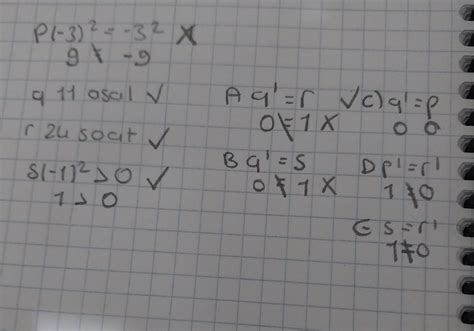 P(-3)² = -3² X
9 ≠ -9
q 11 asal ✓
r 24 saat ✓
S(-1)² > 0 ✓
1 > 0
A q' = r
0 ≠ 1 X
B q' = s
0 ≠ 1 X
✓ C) q' = p
0 0
D p' = r'
1 ≠ 0
E s = r'
1 ≠ 0